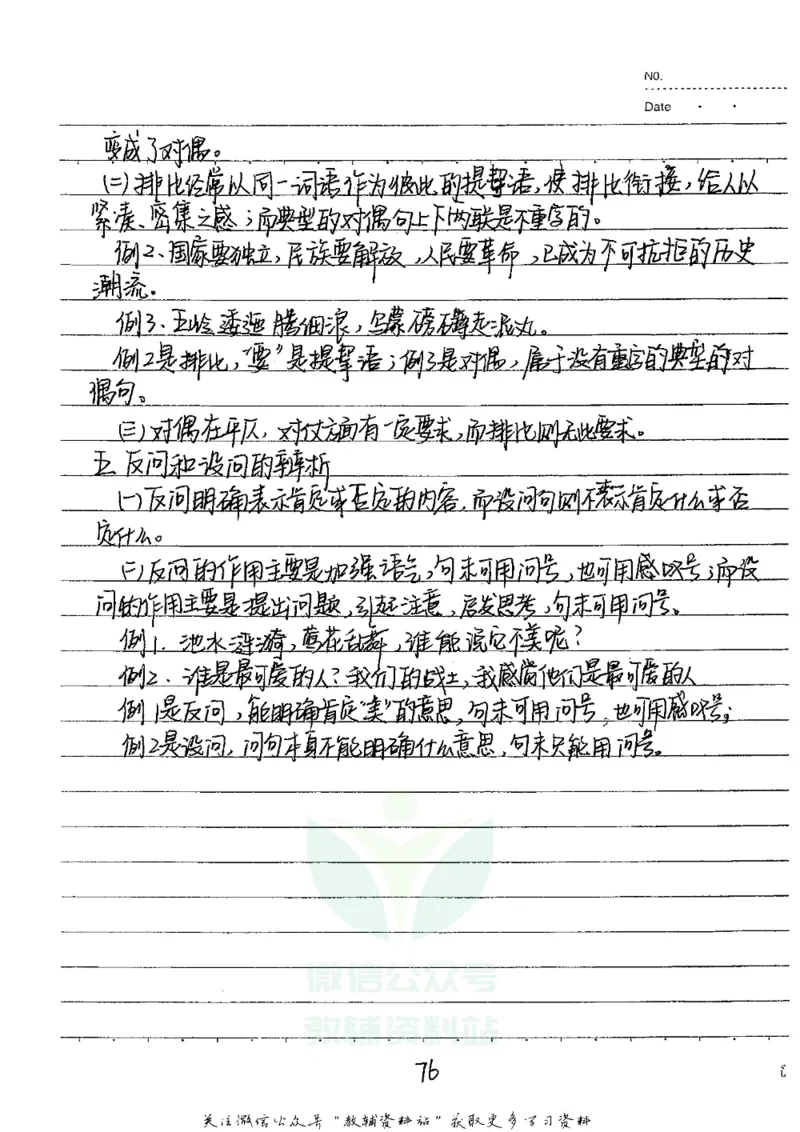 No.
Date
变成了对偶。
(二)排比经常以同一词语作为彼此的提挈语,使排比衔接,给人以
紧凑、密集之感;而典型的对偶句上下两联是不重字的。
例2、国家要独立,民族要解放,人民要革命,已成为不可抗拒的历史
潮流。
例3、五岭逶迤腾细浪,乌蒙磅礴走泥丸。
例2是排比,“要”是提挈语;例3是对偶,属于没有重字的典型的对
偶句。
(三)对偶在平仄、对仗方面有一定要求,而排比则无此要求。
五 反问和设问的辨析
(一)反问明确表示肯定或否定的内容,而设问句则不表示肯定什么或否
定什么。
(二)反问的作用主要是加强语气,句末可用问号,也可用感叹号;而设
问的作用主要是提出问题,引起注意,启发思考,句末可用问号。
例1. 池水涟漪,莺花乱舞,谁能说它不美呢?
例2. 谁是最可爱的人?我们的战士,我感觉他们是最可爱的人
例1是反问,能明确肯定“美”的意思,句末可用问号,也可用感叹号;
例2是设问,问句本身不能明确什么意思,句末只能用问号。
微信公众号
教辅资料站
76
关注微信公众号“教辅资料站”获取更多学习资料